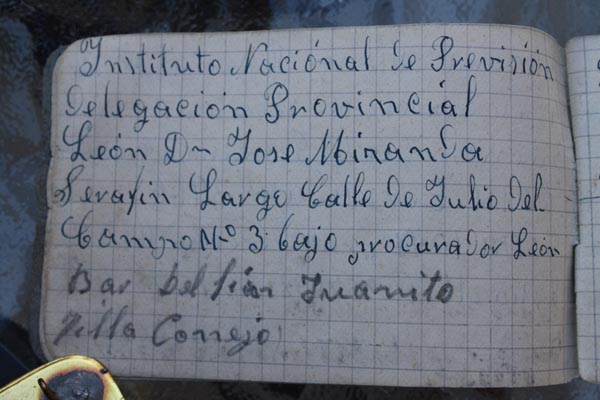 Instituto Naciónal de Previsión
Delegación Provincial
León Dr Jose Miranda
Serafin Largo Calle de Julio del
Campo Nº 3 bajo procurador León
Bar del Juanito
Villa Conejo